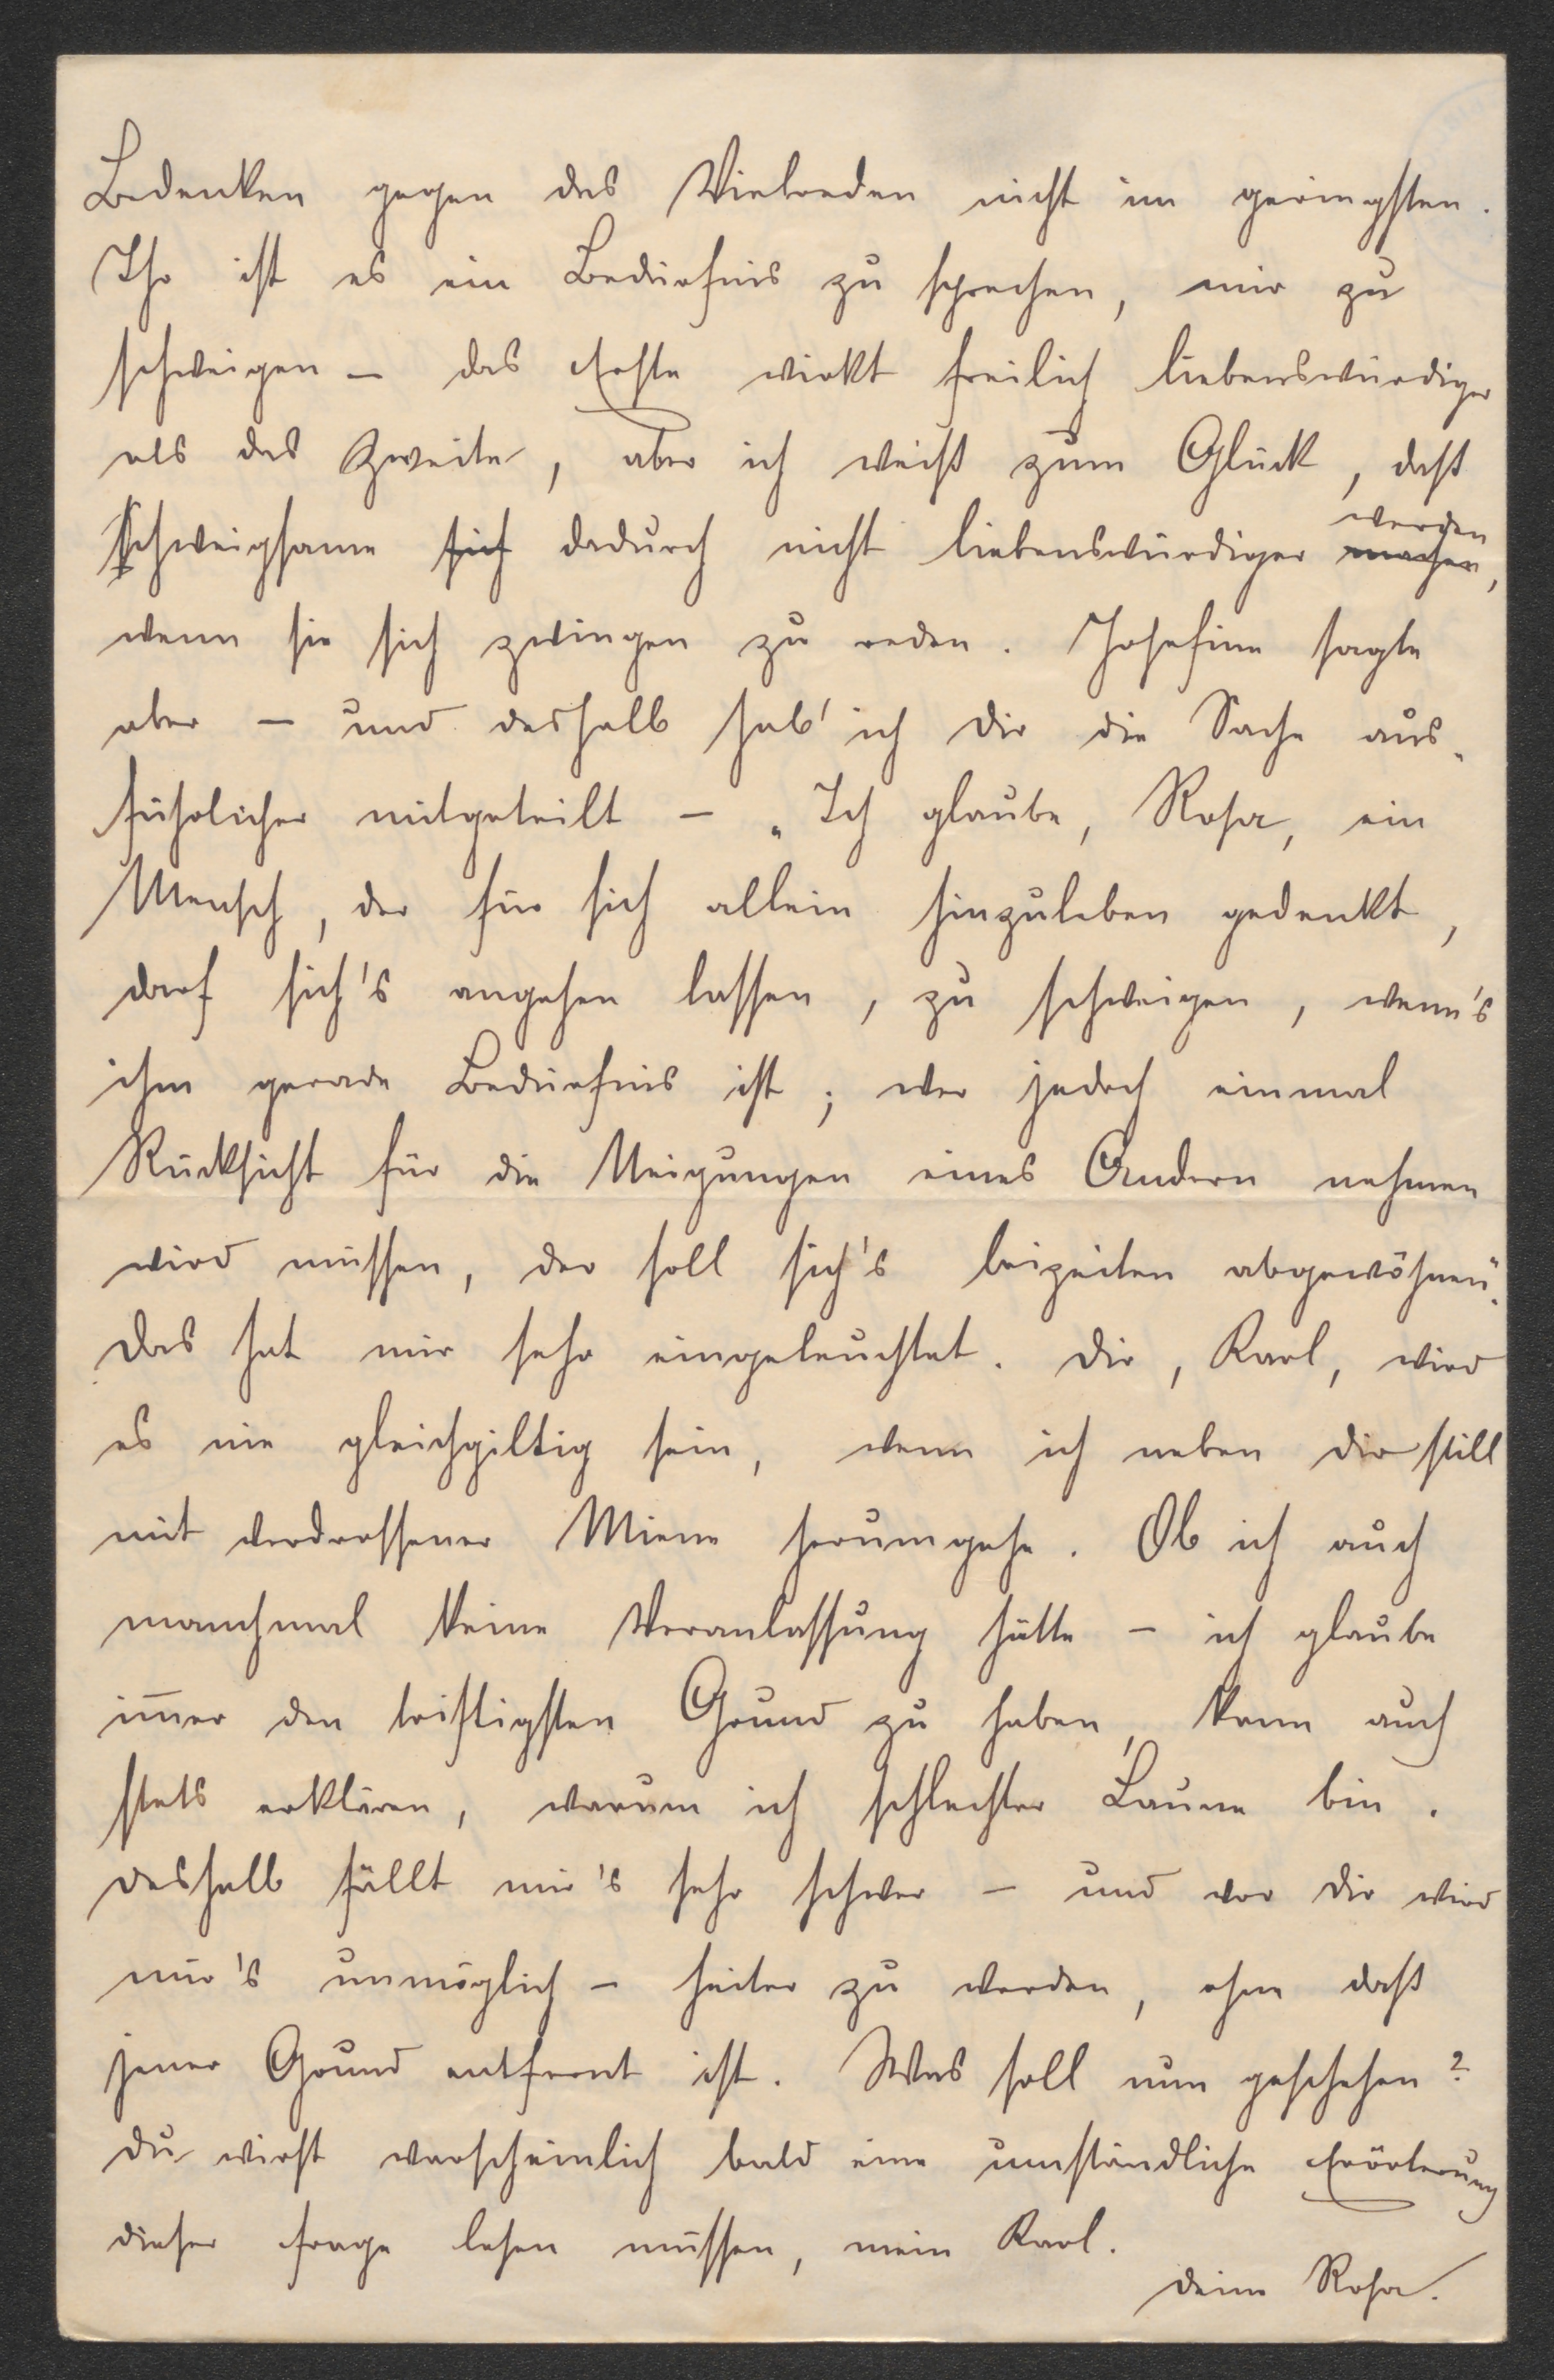 Bedenken gegen das Vielreden nicht im geringsten.
Ihr ist es ein Bedürfnis zu sprechen, mir zu
schweigen – das Erste wirkt freilich liebenswürdiger
als das Zweite, aber ich weiß zum Glück, daß
Schweigsame sich dadurch nicht liebenswürdiger machen werden,
wenn sie sich zwingen zu reden. Josefine sagte
aber – und deshalb hab' ich Dir die Sache aus-
führlicher mitgeteilt – „Ich glaube, Rosa, ein
Mensch, der für sich allein hinzuleben gedenkt,
darf sich's angehen lassen, zu schweigen, wenn's
ihm gerade Bedürfnis ist; wer jedoch einmal
Rücksicht für die Neigungen eines Andern nehmen
wird müssen, der soll sich's beizeiten abgewöhnen“.
Das hat mir sehr eingeleuchtet. Dir, Karl, wird
es nie gleichgiltig sein, wenn ich neben Dir still
mit verdrossener Miene herumgehe. Ob ich auch
manchmal keine Veranlassung hätte – ich glaube
im̄er den triftigsten Grund zu haben, kann auch
stets erklären, warum ich schlechter Laune bin.
Deshalb fällt mir's sehr schwer – und vor Dir wird
mir's unmöglich – heiter zu werden, ohne daß
jener Grund entfernt ist. Was soll nun geschehen?
Du wirst warscheinlich bald eine umständliche Erörterung
dieser Frage lesen müssen, mein Karl.
Deine Rosa.